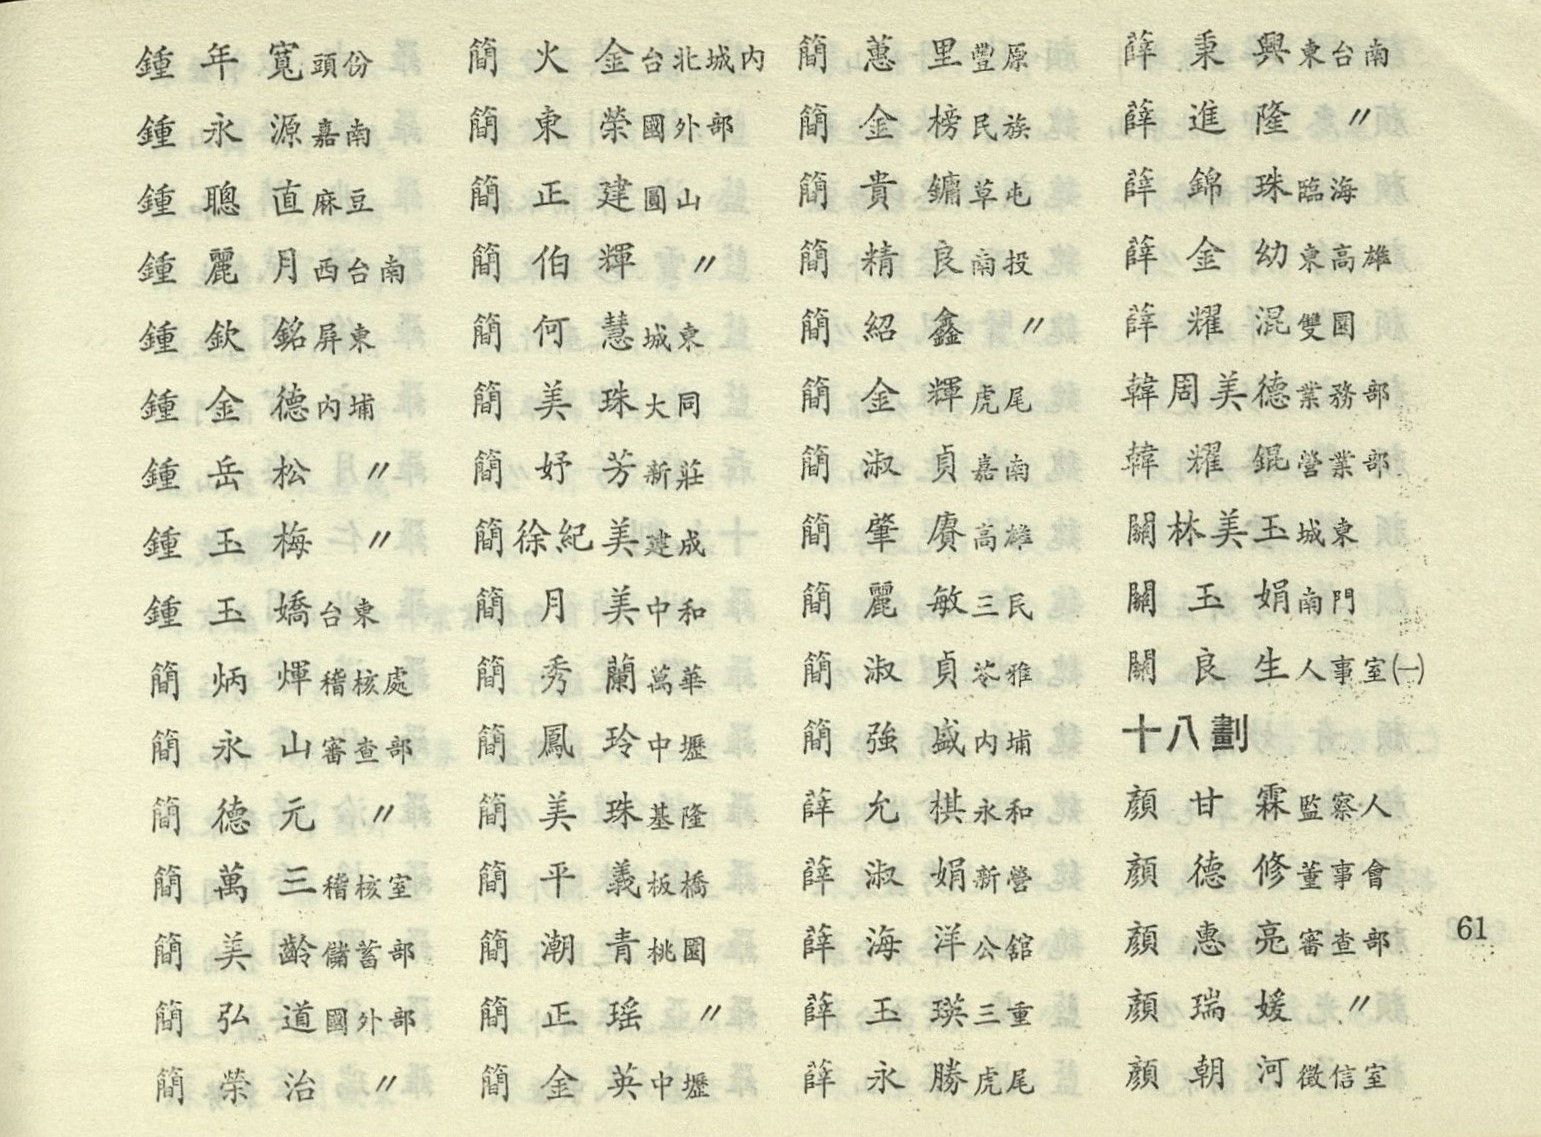 鍾年寬頭份
鍾永源嘉南
鍾聰直麻豆
鍾麗月西台南
鍾欽銘屏東
鍾金德內埔
鍾岳松〃
鍾玉梅〃
鍾玉嬌台東
簡炳煇稽核處
簡永山審查部
簡德元〃
簡萬三稽核室
簡美齡儲蓄部
簡弘道國外部
簡榮治〃
簡火金台北城內
簡東榮國外部
簡正建圓山
簡伯輝〃
簡何慧城東
簡美珠大同
簡妤芳新莊
簡徐紀美建成
簡月美中和
簡秀蘭萬華
簡鳳玲中壢
簡美珠基隆
簡平義板橋
簡潮青桃園
簡正瑤〃
簡金英中壢
簡蕙里豐原
簡金榜民族
簡貴鏞草屯
簡精良南投
簡紹鑫〃
簡金輝虎尾
簡淑貞嘉南
簡肇賡高雄
簡麗敏三民
簡淑貞苓雅
簡強盛內埔
薛允棋永和
薛淑娟新營
薛海洋公館
薛玉瑛三重
薛永勝虎尾
薛秉興東台南
薛進隆〃
薛錦珠臨海
薛金幼東高雄
薛耀混雙園
韓周美德業務部
韓耀錕營業部
關林美玉城東
關玉娟南門
關良生人事室(一)
十八劃
顏甘霖監察人
顏德修董事會
顏惠亮審查部
顏瑞媛〃
顏朝河徵信室
61